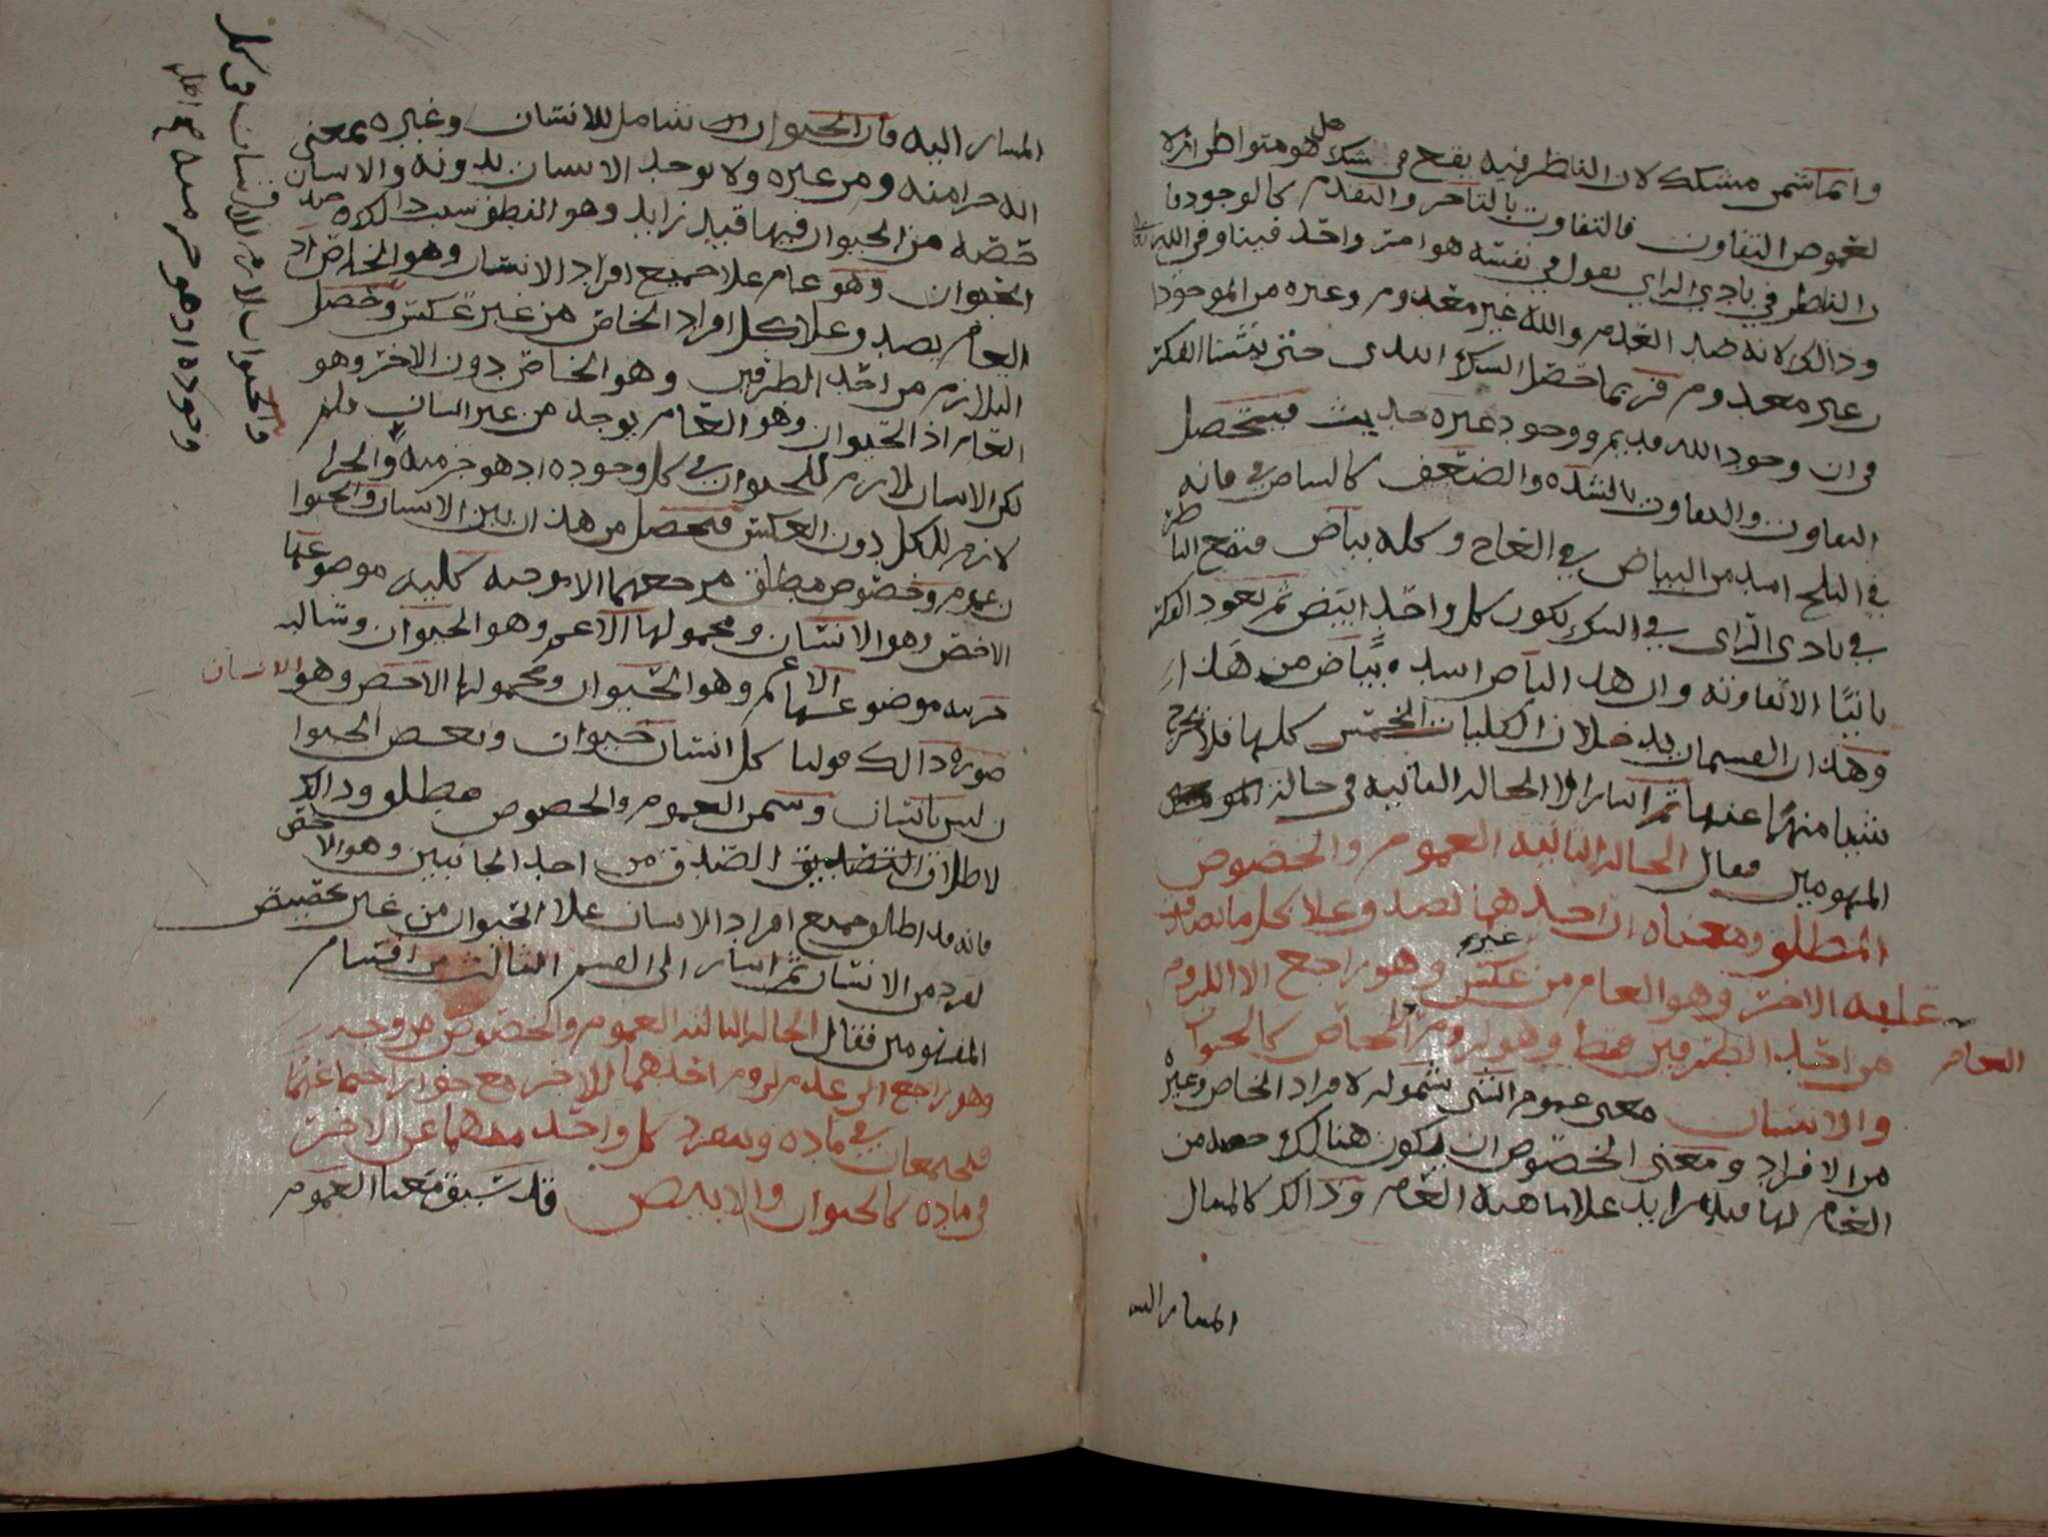 وانما سمي مشكك لان الناظر فيه يقع في شك هل هو متواطي ام لا
لغموض التفاوت فالتفاوت بالتاخر والتقدم كالوجود فا
ن الناظر في بادي الراي يقول في نفسه هو امر واحد فينا وفي الله تعالى
وذالك لانه ضد العدم والله غير معدوم وغيره من الموجودا
ت غير معدوم فربما حصل الشك البدي حتى
في ان وجود الله قديم ووجود غيره حديث فيتحصل
التفاوت والتفاوت بالشده والضعف كالبياض فانه
في الثلج اشد من البياض في العاج وكله بياض فيقع الناظر
في بادي الراي في الشك لكون كل واحد ابيض ثم يعود الفكر
ثانيًا الا تفاوته وان هذا البياض اشد بياض من هذا
وهذان القسمان يدخلان الكليات الخمس كلها فلا يخرج
شيا منها عنهما ثم اشار الا الحاله الثانيه في حالة
المفهومين فقال الحاله الثانيه العموم والخصوص
المطلق ومعناه ان احدهما يصدق علا كل ما يصدق
عليه الاخر وهو العام من غير عكس وهو راجع الا اللزوم
من احد الطرفين فقط وهو لزوم الخاص كالحيوان العام
والانسان معنى عموم الشي شموله لافراد الخاص وغيره
من الافراد ومعنى الخصوص ان يكون هنالك حصه من
العام لها قيد زايد علا ماهية العام وذالك كالمثال
المشار اليه
المشار اليه فان الحيوان شامل للانسان وغيره بمعنى
انه جزا منه ومن غيره ولا يوجد الانسان بدونه والانسان
حصه من الحيوان فيها قيد زايد وهو النطق
الحيوان وهو عام علا جميع افراد الانسان وهو الخاص اذ
العام يصدق علا كل افراد الخاص من غير عكس وحصل
التلازم من احد الطرفين وهو الخاص دون الاخر وهو
العام اذ الحيوان وهو العام يوجد من غير انسان فلم
لكن الانسان لازم للحيوان في كل وجوده اذ هو جز منه والجزا
لازم للكل دون العكس فتحصل من هذا ان بين الانسان والحيوا
ن عموم وخصوص مطلق مرجعهما الا موجبه كليه موضوعها
الاخص وهو الانسان ومحمولها الاعم وهو الحيوان وسالبه
جزييه موضوعها الاعم وهو الحيوان ومحمولها الاخص وهو الانسان
صورة ذالك قولنا كل انسان حيوان وبعض الحيوا
ن ليس بانسان وسمي العموم والخصوص مطلق وذالك
لاطلاق الصدق من احد الجانبين وهو الاخص
فانه قد اطلق جميع افراد الانسان علا الحيوان من غير تخصيص
لفرد من الانسان ثم اشار الى القسم الثالث من اقسام
المفهومين فقال الحاله الثالثه العموم والخصوص من وجه
وهو راجع الى عدم لزوم احدهما للاخر مع جواز اجتماعهما
فيجتمعان في ماده وينفرد كل واحد منهما عن الاخر
في ماده كالحيوان والابيض قد سبق معنا العموم